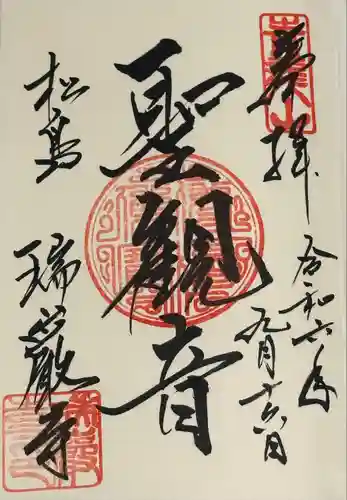 奉拝
令和六年
九月十六日
聖觀音
松島
瑞巖寺